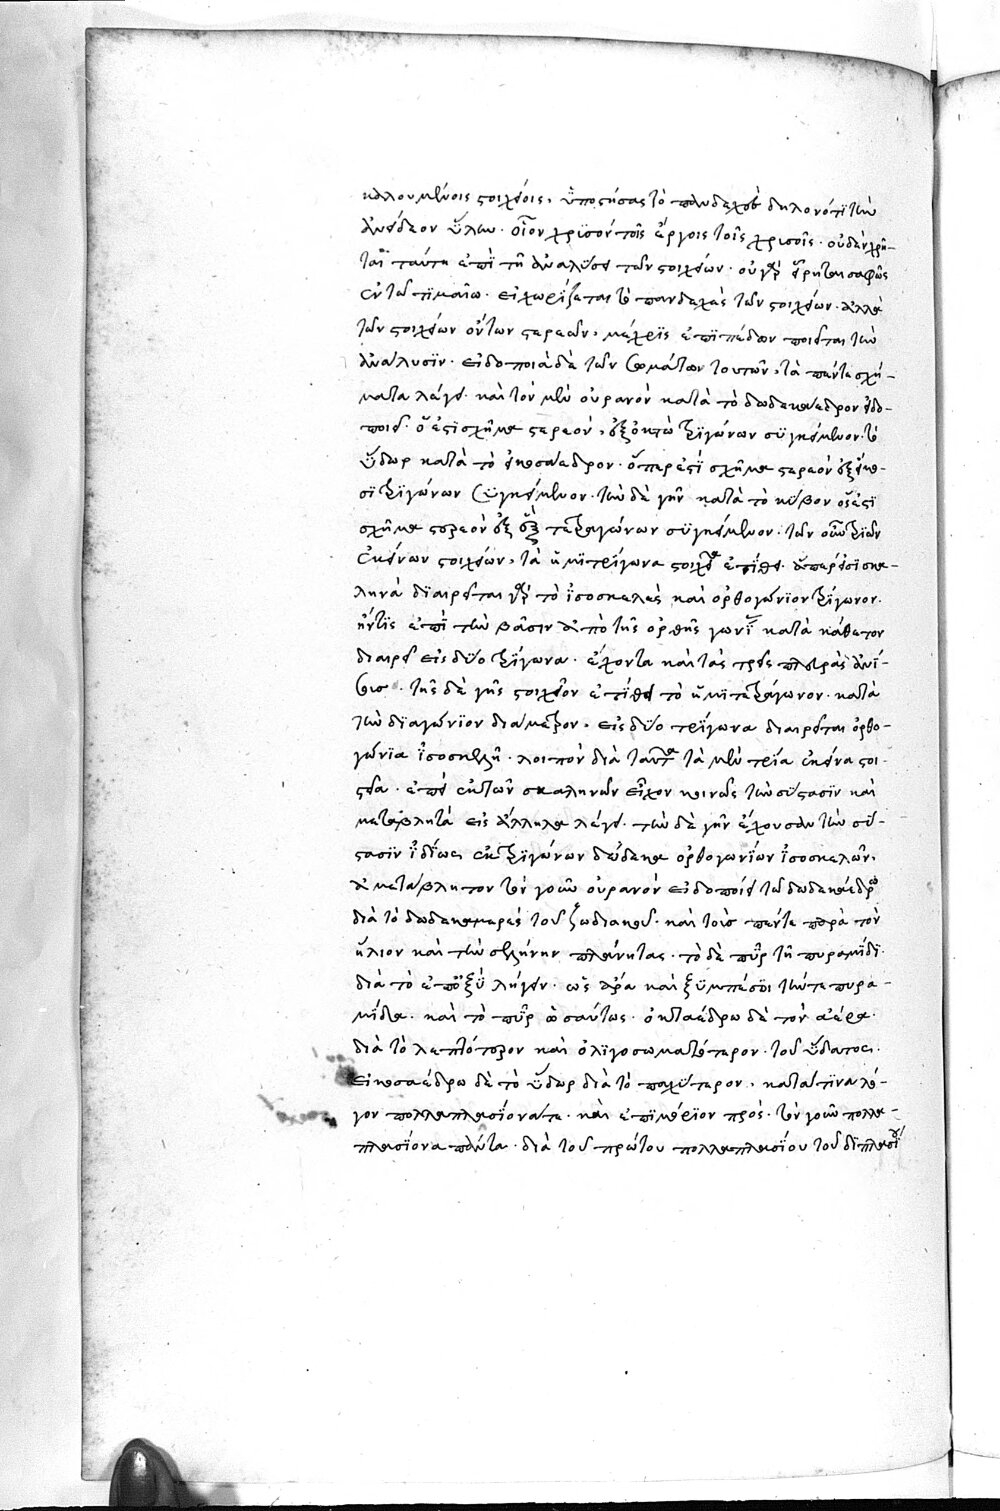 καλουμένοις στοιχείοις, ὑποστήσας τὸ πανδεχὲς δηλονότι τὴν
ἀνείδεον ὕλην. οἷον χρυσόν τοῖς ἔργοις τοῖς χρυσοῖς. οὐδὲν χρῆ-
ται ταύτη ἐπὶ τῆ ἀναλύσει τῶν στοιχείων. οὐ γὰρ εἴρηται σαφῶς
ἐν τῶ τιμαίω. εἰ χωρίζεται τὸ πανδεχὲς τῶν στοιχείων. ἀλλὰ
τῶν στοιχείων ὄντων στερεῶν, μέχρις ἐπιπέδων ποιεῖται τὴν
ἀνάλυσιν. εἰδοποιὰ δὲ τῶν σωμάτων τούτων, τὰ πέντε σχή-
ματα λέγει. καὶ τὸν μὲν οὐρανὸν κατὰ τὸ δωδεκάεδρον εἰδο-
ποιεῖ. ὅ ἐστι σχῆμα στερεὸν, ἐξ ὀκτὼ τριγώνων συγκείμενον. τὸ
ὕδωρ κατὰ τὸ εἰκοσάεδρον. ὅπερ ἐστὶ σχῆμα στερεὸν ἐξ εἴκο-
σι τριγώνων συγκείμενον. τὴν δὲ γῆν κατὰ τὸ κύβον ὅ ἐστι
σχῆμα στερεὸν ἐξ ἓξ τετραγώνων συγκείμενον. τῶν οὖν τριῶν
ἐκείνων στοιχείων, τὰ ἡμιτρίγωνα στοιχεῖα ἐτίθει. ἅπερ εἰσὶ σκα-
ληνά διαιρεῖται γὰρ τὸ ἰσοσκελὲς καὶ ὀρθογώνιον τρίγωνον.
ἥντις ἐπὶ τὴν βάσιν ἀπὸ τῆς ὀρθῆς γωνίας κατὰ κάθετον
διαιρεῖ εἰς δύο τρίγωνα. ἔχοντα καὶ τὰς τρεῖς πλευρὰς ἀνί-
σους. τῆς δὲ γῆς στοιχεῖον ἐτίθει τὸ ἡμιτετράγωνον. κατὰ
τὴν διαγώνιον διάμετρον, εἰς δύο τρίγωνα διαιρεῖται ὀρθο-
γώνια ἰσοσκελῆ. λοιπὸν διὰ ταῦτα τὰ μὲν τρία ἐκεῖνα στοι-
χεῖα. ἐπεὶ ἐκ τῶν σκαληνῶν εἶχον κοινῶς τὴν σύστασιν καὶ
μεταβλητά εἰς ἄλληλα λέγει. τὴν δὲ γῆν ἔχουσαν τὴν σύ-
στασιν ἰδίως ἐκ τριγώνων δώδεκα ὀρθογωνίων ἰσοσκελῶν,
ἀμετάβλητον τὸν γοῦν οὐρανὸν εἰδοποιεῖ τῶ δωδεκαέδρω
διὰ τὸ δωδεκαμερές τοῦ ζωδιακοῦ. καὶ τοὺς πέντε παρὰ τὸν
ἥλιον καὶ τὴν σελήνην πλάνητας. τὸ δὲ πῦρ τῆ πυραμίδι.
διὰ τὸ ἐπ' ὀξὺ λήγειν. ὡς ἄρα καὶ ξυμπέσοι τήν τε πυρα-
μίδα. καὶ τὸ πῦρ ὡσαύτως. ὀκταέδρω δὲ τὸν ἀέρα.
διὰ τὸ λεπτότερον καὶ ὀλιγοσωματώτερον. τοῦ ὕδατος.
εἰκοσαέδρω δὲ τὸ ὕδωρ διὰ τὸ παχύτερον, κατά τινα λό-
γον πολλαπλασίονά τε. καὶ ἐπιμόριον πρός. τὸν γοῦν πολλα-
πλασίονα πάντα. διὰ τοῦ πρώτου πολλαπλασίου τοῦ διπλασίου